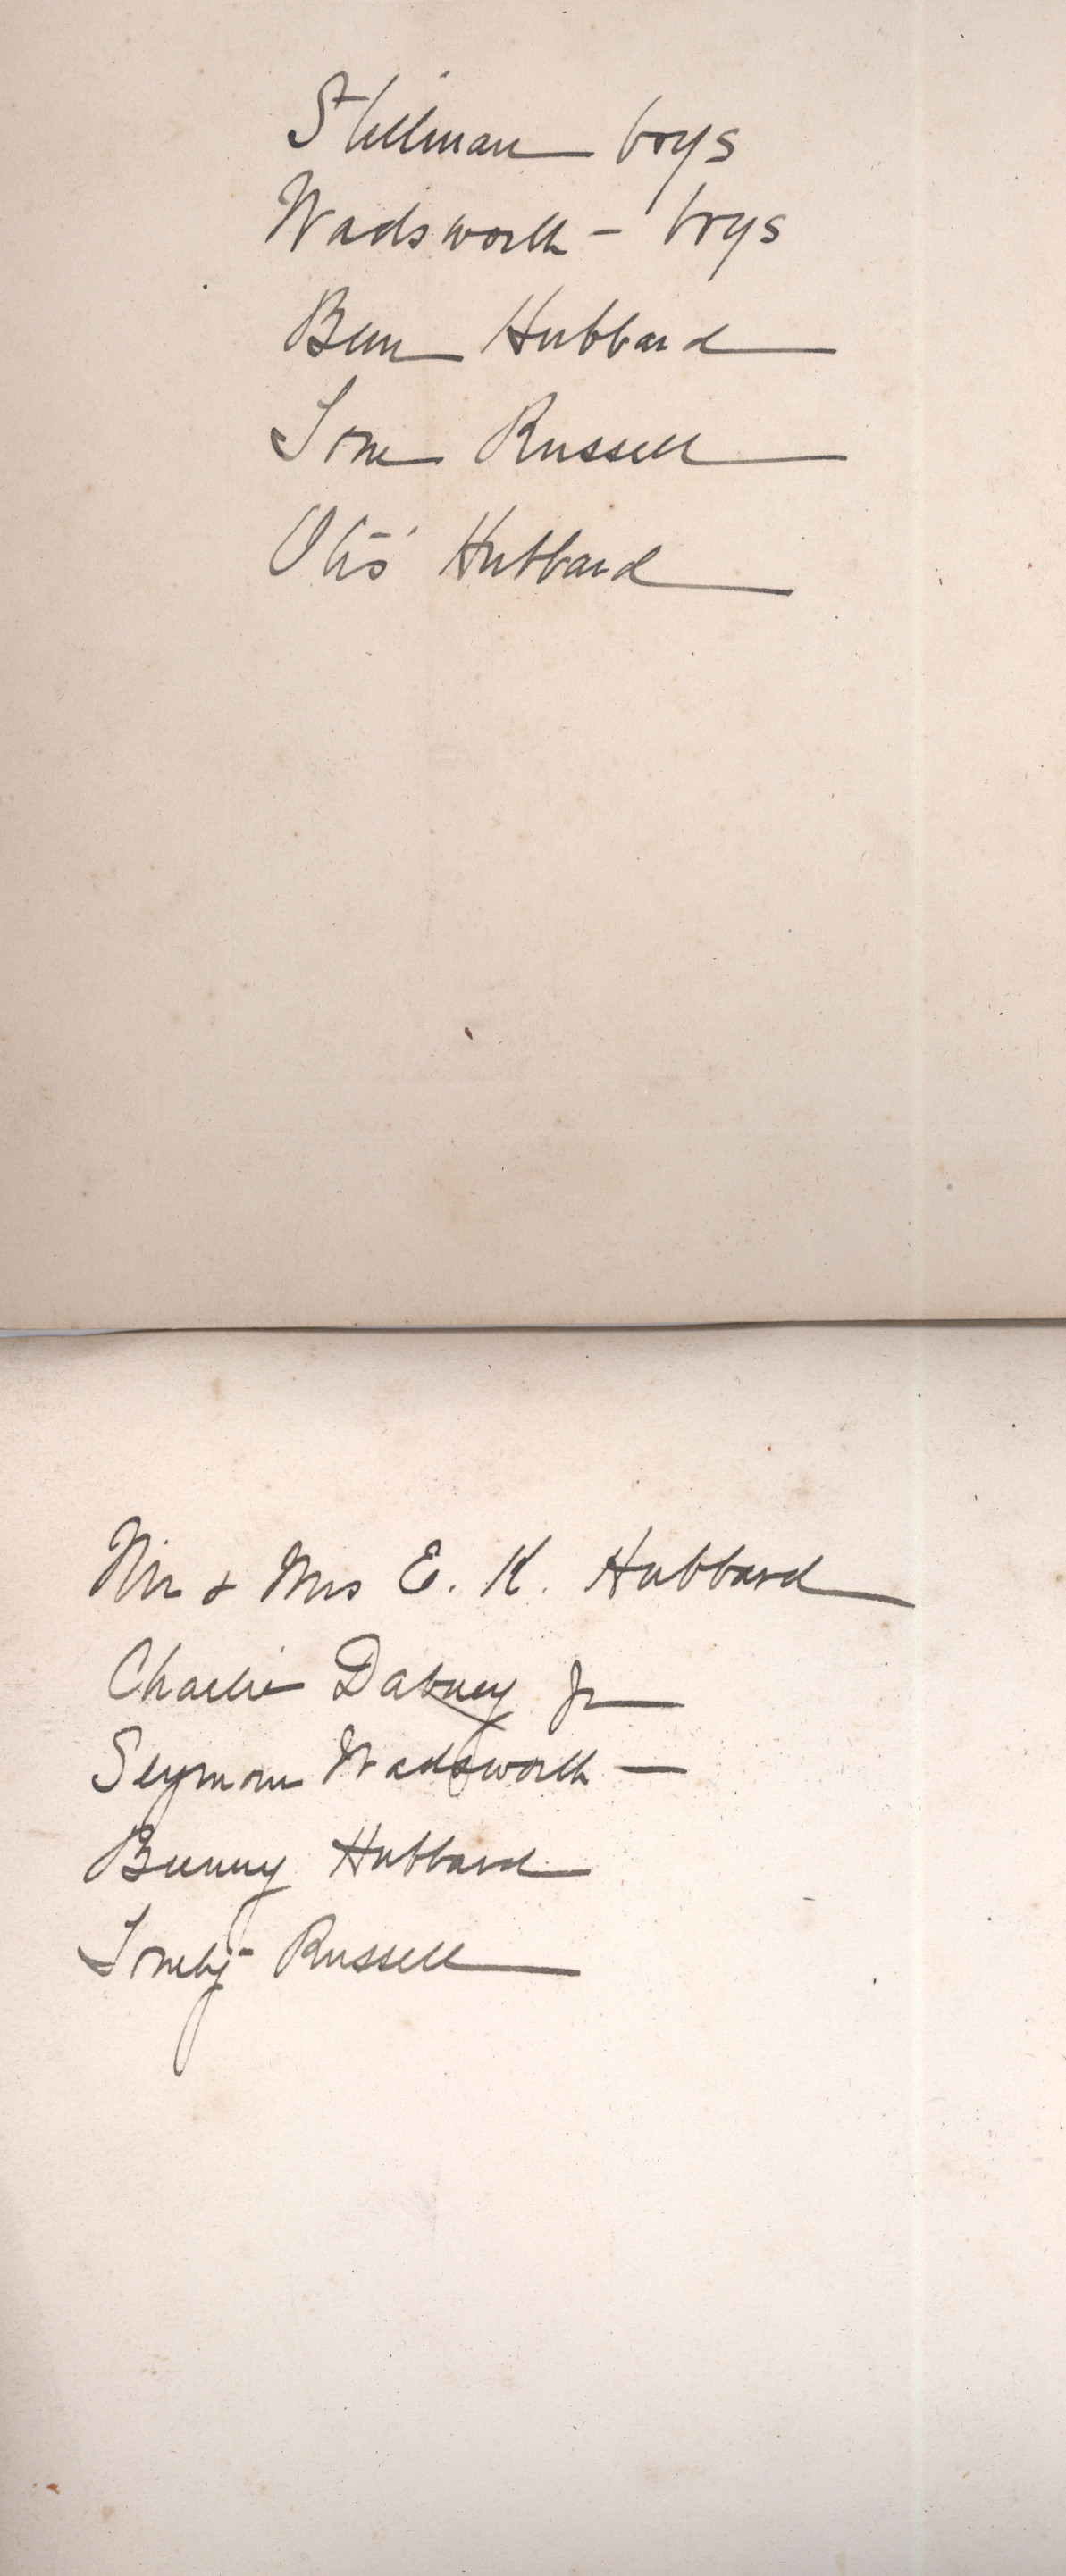 Stillman boys
Wadsworth - boys
Ben Hubbard
Tom Russell
Otis Hubbard
Mr & Mrs E. K. Hubbard
Charlie Dabney Jr
Seymour Wadsworth —
Bunny Hubbard
Russell